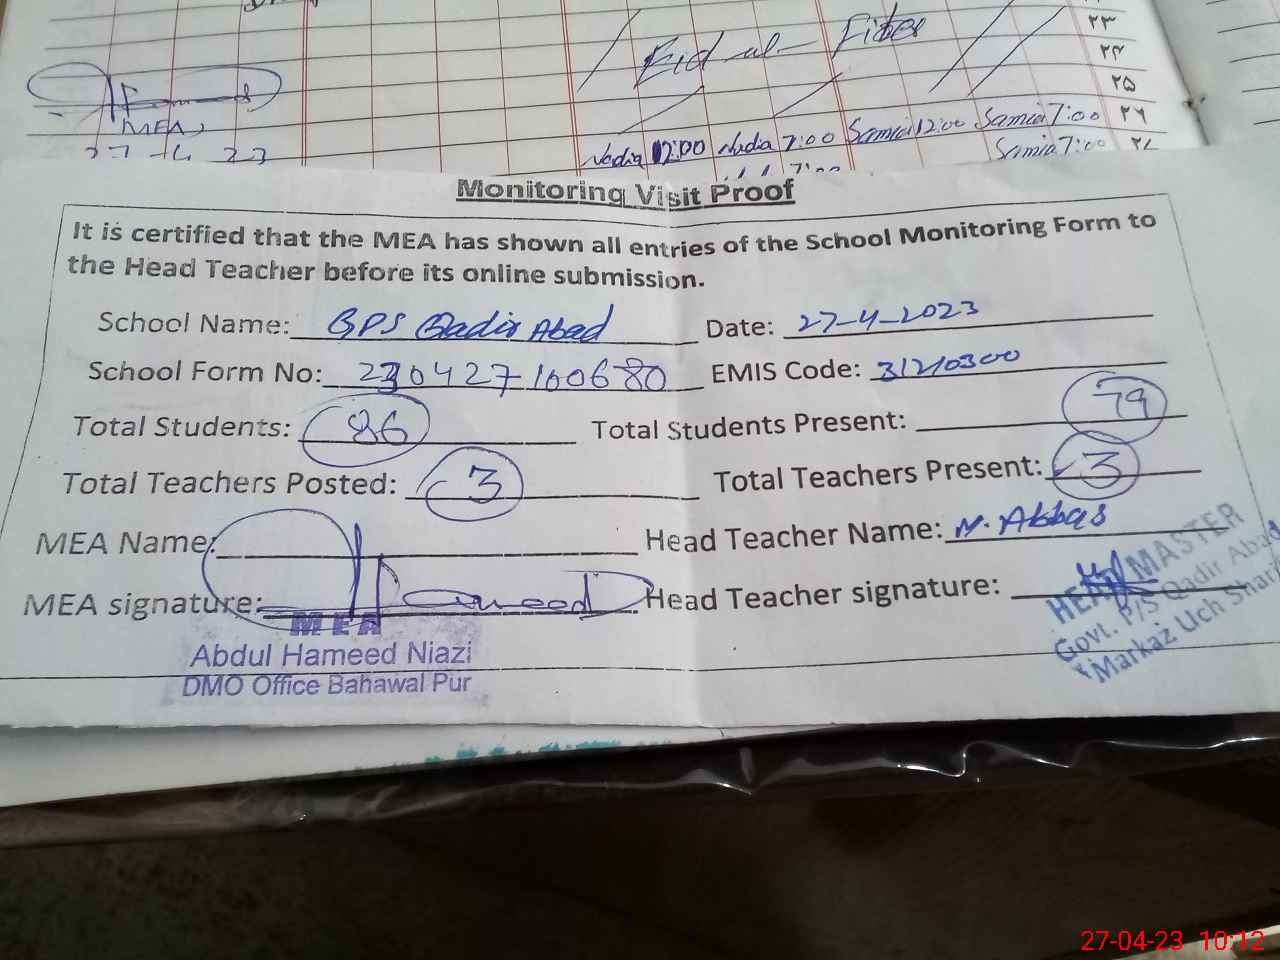 Eid ul-Fiter
۲۳
۲۴
۲۵
Nadia 12:00 Nadia 7:00 Samia 12:00 Samia 7:00 ۲۶
Samia 7:00
Hameed
MEA,
27-4-23
Monitoring Visit Proof
It is certified that the MEA has shown all entries of the School Monitoring Form to
the Head Teacher before its online submission.
School Name: GPS Qadir Abad Date: 27-4-2023
School Form No: 230427100680 EMIS Code: 31210300
Total Students: 86 Total Students Present: 79
Total Teachers Posted: 3 Total Teachers Present: 3
MEA Name: Head Teacher Name: M. Abbas
MEA signature: Hameed Head Teacher signature:
MEA
Abdul Hameed Niazi
DMO Office Bahawal Pur
HEAD MASTER
Govt. P/S Qadir Abad
Markaz Uch Sharif
27-04-23 10:12